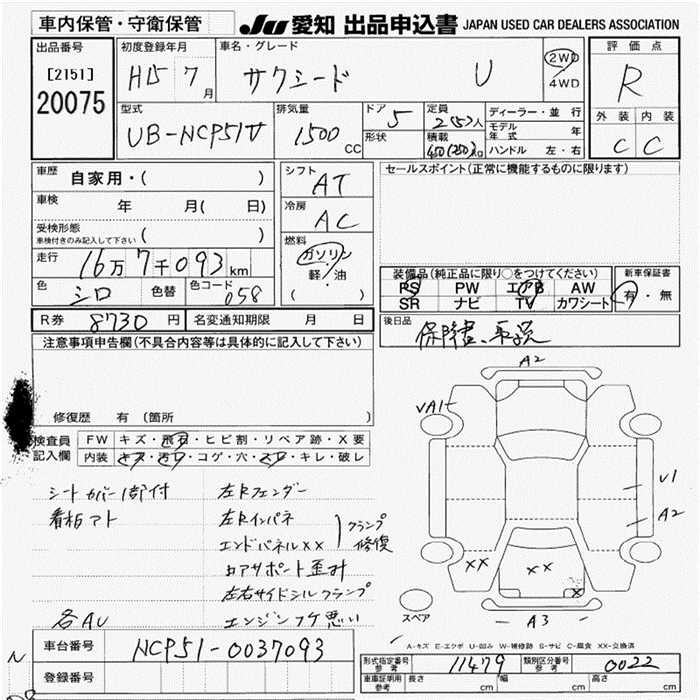 車内保管・守衛保管
JU 愛知 出品申込書 JAPAN USED CAR DEALERS ASSOCIATION
出品番号
[2151]
20075
初度登録年月
H15 7月
車名・グレード
サクシード U
2WD
4WD
評価点
R
外装 内装
C C
型式
UB-NCP51V
排気量
1500 CC
ドア 5
形状
定員 2(5)人
積載 450(250)kg
ディーラー・並行
モデル年式 年
ハンドル 左・右
車歴 自家用・( )
車検 年 月( 日)
受検形態
車検付きのみ記入して下さい ( )
走行 16万7千093km
色 シロ 色替 色コード 058
シフト AT
冷房 AC
燃料 ガソリン
軽・油
( )
セールスポイント(正常に機能するものに限ります)
装備品(純正品に限り○をつけてください)
PS PW エアB AW
SR ナビ TV カワシート
新車保証書
有・無
R券 8730円 名変通知期限 月 日
後日品 保障書、取説
注意事項申告欄(不具合内容等は具体的に記入して下さい)
修復歴 有 (箇所
検査員記入欄
FW キズ・飛石・ヒビ割・リペア跡・X要
内装 キズ・汚レ・コゲ・穴・スレ・キレ・破レ
シートカバー1部付
看板アト
各AU
左Rフェンダー
左Rインパネ
エンドパネルXX
クランプ修復
ロアサポート歪み
左右サイドシルクランプ
エンジンフケ悪い
A2
VA1
V1
A2
XX
XX
X
A3
スペア
A-キズ E-エクボ U-凹み W-補修跡 S-サビ C-腐食 XX-交換済
車台番号 NCP51-0037093
登録番号
N
形式指定番号 参考 11479 類別区分番号 参考 0022
車庫証明用 参考 長さ cm 幅 cm 高さ cm